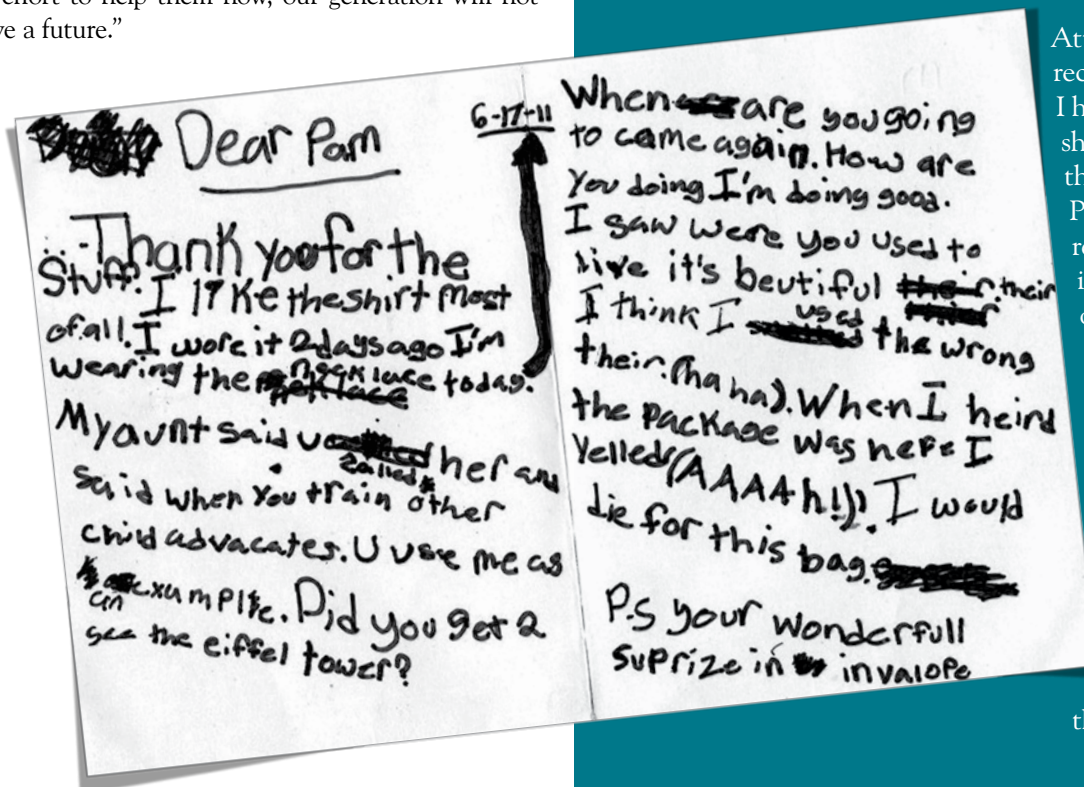 effort to help them now, our generation will not
ve a future.”
Dear Pam
6-17-11
Thank you for the
Stuff. I like the shirt most
of all. I wore it 2 days ago I'm
wearing the necklace today.
My aunt said u called her and
said when you train other
child advacates. U use me as
an exumplke. Did you get 2
see the eiffel tower?
When are you going
to came again. How are
You doing I'm doing good.
I saw were you used to
live it's beutiful their.
I think I used the wrong
their. (ha ha). When I heird
the package was here I
Yelled (AAAAh!)). I would
die for this bag.
P.S your wonderfull
suprize in invalope